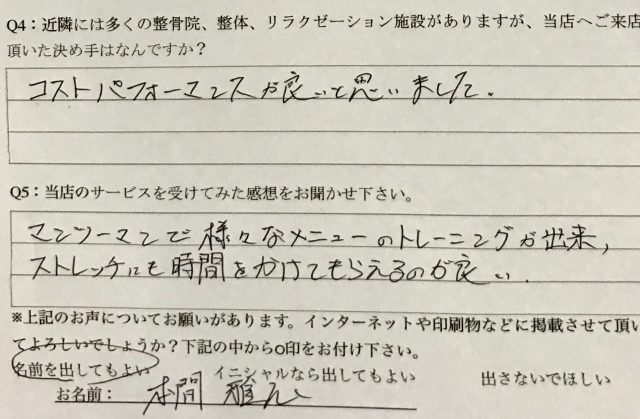 Q4：近隣には多くの整骨院、整体、リラクゼーション施設がありますが、当店へご来店
頂いた決め手はなんですか？
コストパフォーマンスが良いと思いました。
Q5：当店のサービスを受けてみた感想をお聞かせ下さい。
マンツーマンで様々なメニューのトレーニングが出来,
ストレッチにも時間をかけてもらえるのが良い.
※上記のお声についてお願いがあります。インターネットや印刷物などに掲載させて頂い
てよろしいでしょうか？下記の中から○印をお付け下さい。
名前を出してもよい　イニシャルなら出してもよい　出さないでほしい
お名前：本間